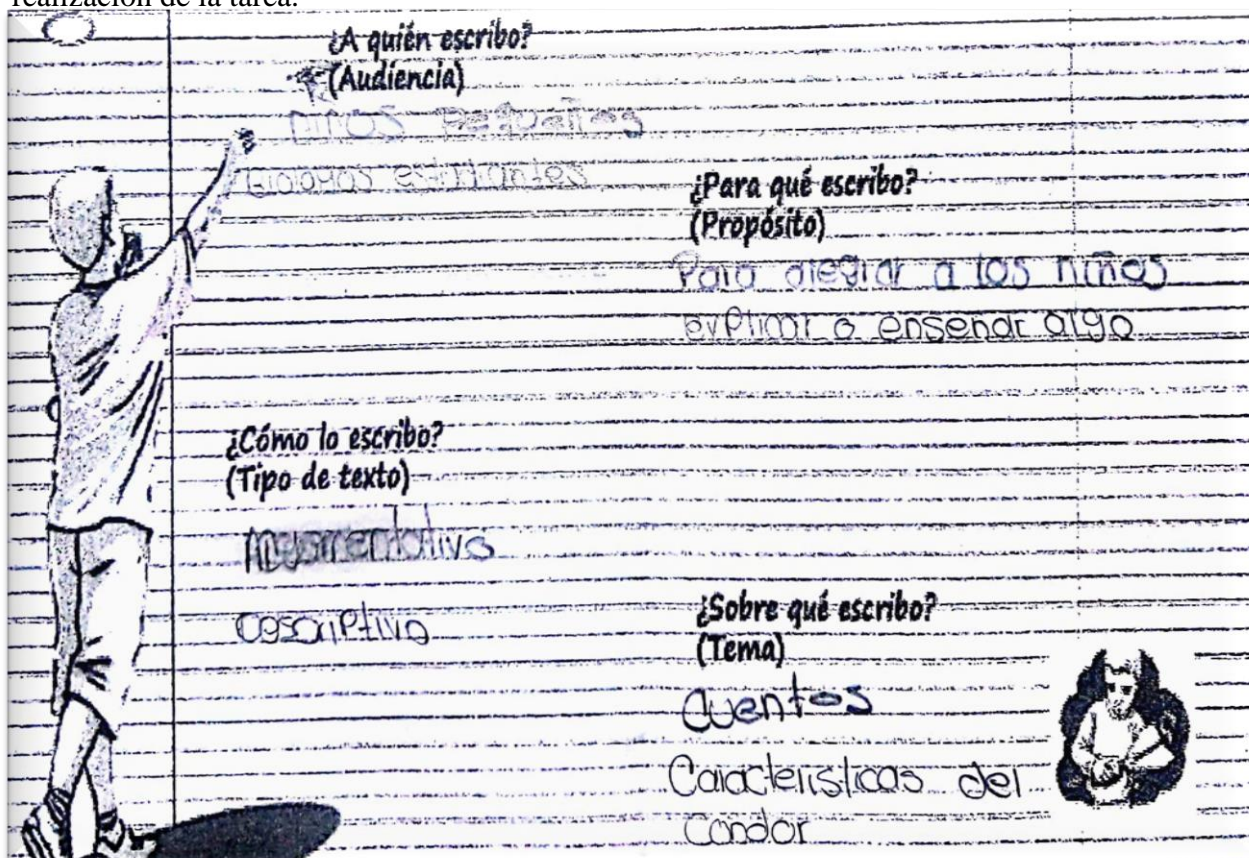 realización de la tarea.
¿A quién escribo?
(Audiencia)
niños pequeños
Biologos estudiantes
¿Para qué escribo?
(Propósito)
Para alegrar a los niños
explicar o enseñar algo
¿Cómo lo escribo?
(Tipo de texto)
Argumentativo
Descriptivo
¿Sobre qué escribo?
(Tema)
Cuentos
Caracteristicas del
Condor